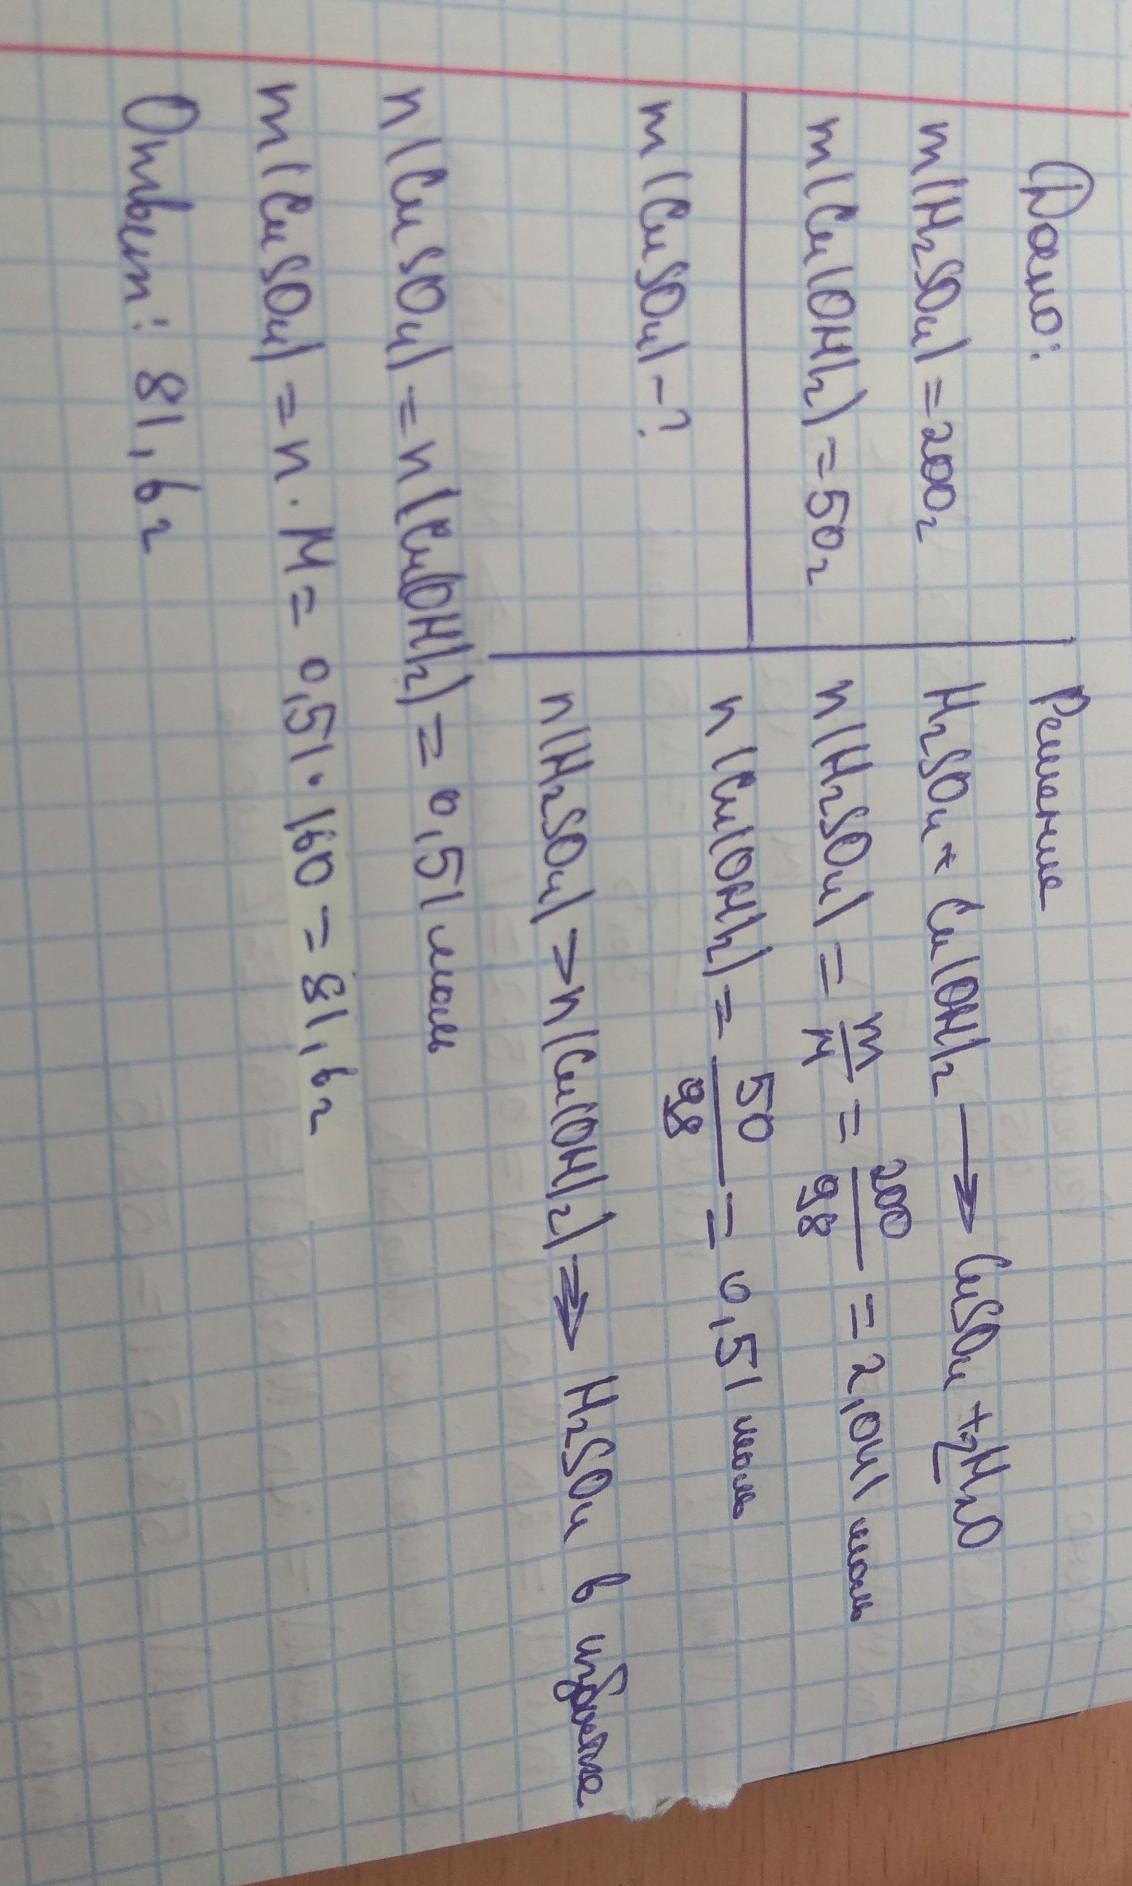 Дано:
m(H₂SO₄) = 200г
m(Cu(OH)₂) = 50г
m(CuSO₄) - ?
Решение
H₂SO₄ + Cu(OH)₂ ⟶ CuSO₄ + 2H₂O
n(H₂SO₄) = m/M = 200/98 = 2,041 моль
n(Cu(OH)₂) = 50/98 = 0,51 моль
n(H₂SO₄) > n(Cu(OH)₂) ⇒ H₂SO₄ в избытке
n(CuSO₄) = n(Cu(OH)₂) = 0,51 моль
m(CuSO₄) = n · M = 0,51 · 160 = 81,6г
Ответ: 81,6г